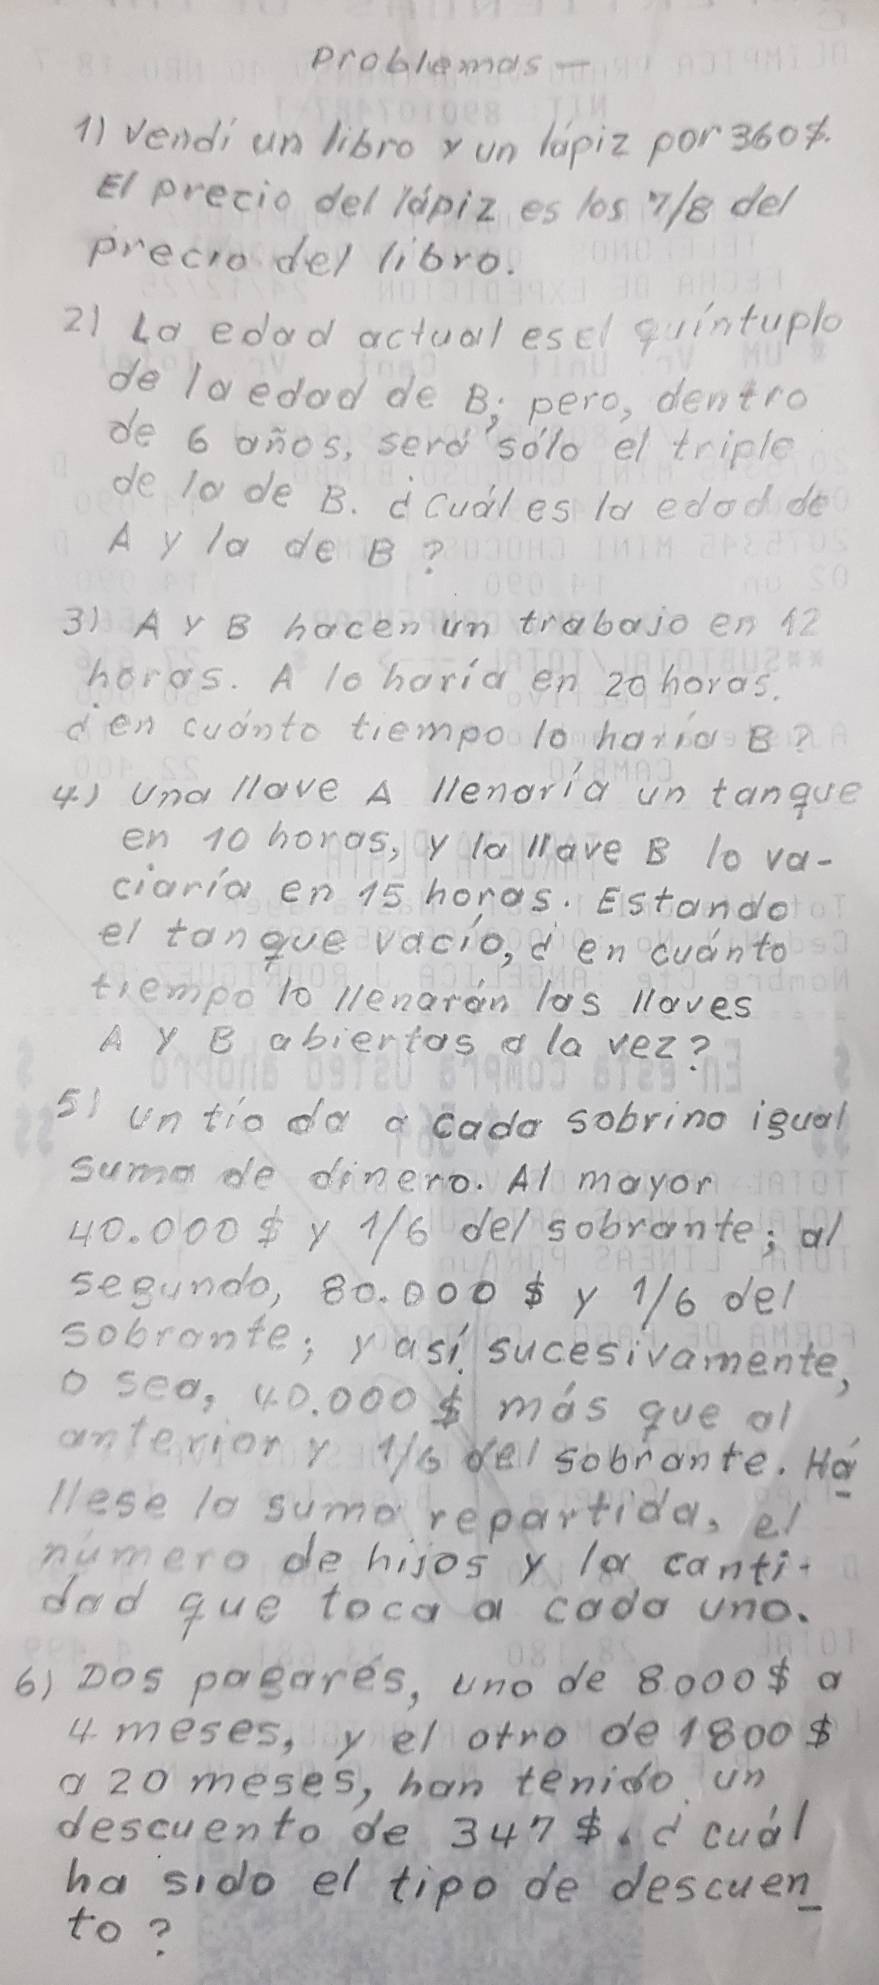 Problemas -
1) Vendí un libro y un lápiz por 360$.
El precio del lápiz es los 7/8 del
precio del libro.
2) La edad actual es el quíntuplo
de la edad de B; pero, dentro
de 6 años, será sólo el triple
de la de B. ¿Cuál es la edad de
A y la de B?
3) A y B hacen un trabajo en 12
horas. A lo haría en 20 horas.
¿en cuánto tiempo lo haría B?
4) Una llave A llenaría un tanque
en 10 horas, y la llave B lo va-
ciaría en 15 horas. Estando
el tanque vacío, ¿en cuánto
tiempo lo llenarán las llaves
A y B abiertas a la vez?
5) Un tío da a cada sobrino igual
suma de dinero. Al mayor
40.000 $ y 1/6 del sobrante; al
segundo, 80.000 $ y 1/6 del
sobrante; y así sucesivamente,
o sea, 40.000 $ más que al
anterior y 1/6 del sobrante. Há
llese la suma repartida, el
número de hijos y la canti-
dad que toca a cada uno.
6) Dos pagarés, uno de 8.000 $ a
4 meses, y el otro de 1800 $
a 20 meses, han tenido un
descuento de 347 $. ¿cuál
ha sido el tipo de descuen
to?